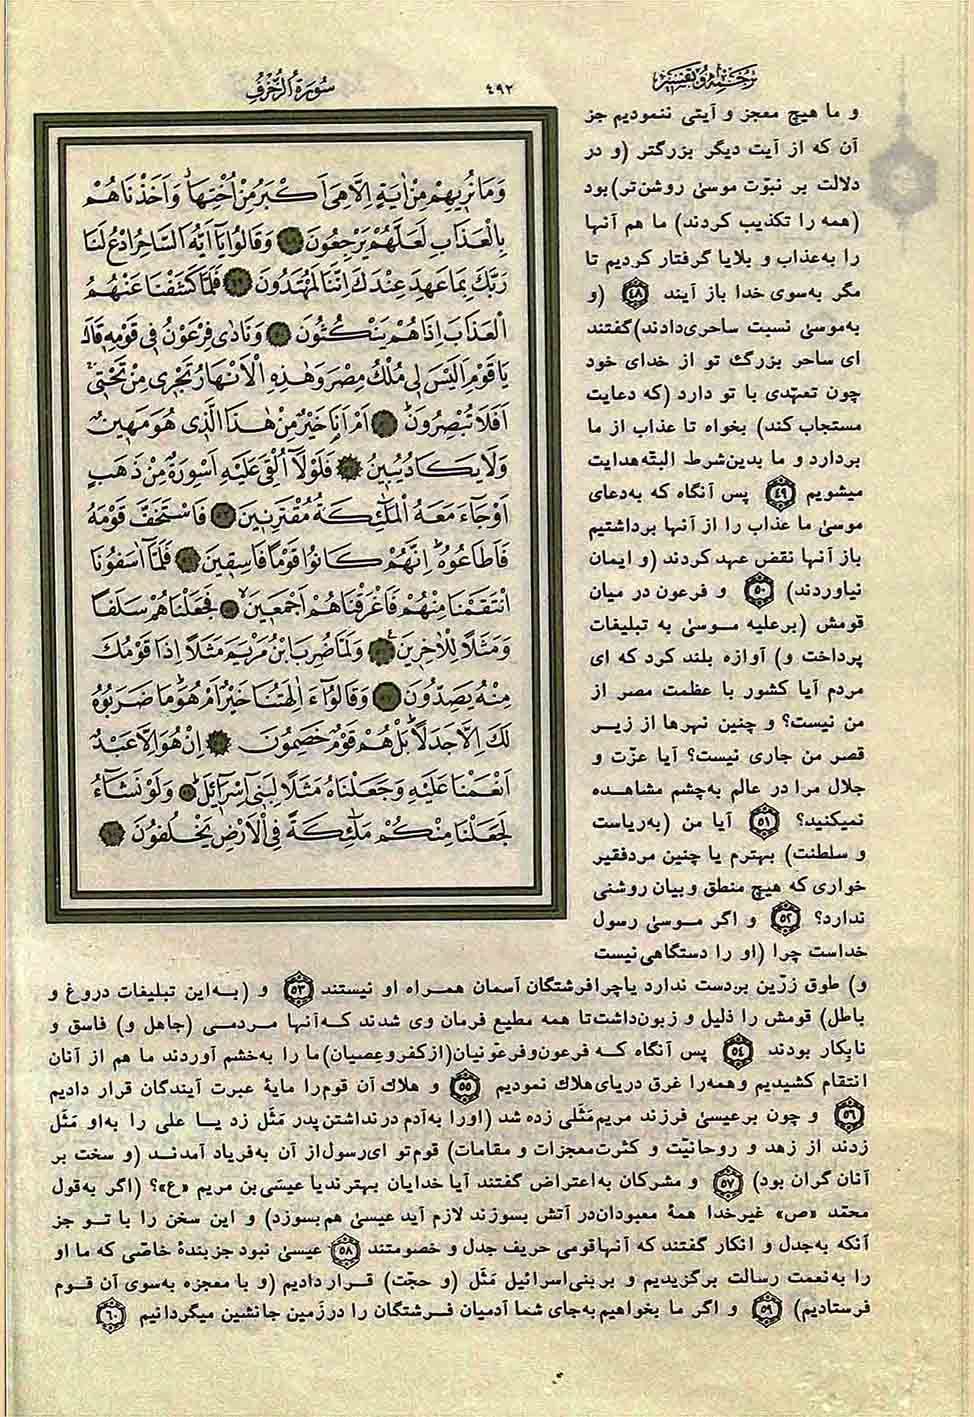 ترجمه و تفسیر
۴۹۲
سُورَةُ الزُّخْرُفِ
وَمَا نُرِيهِمْ مِنْ اٰيَةٍ اِلَّا هِىَ اَكْبَرُ مِنْ اُخْتِهَا وَاَخَذْنَاهُمْ
بِالْعَذَابِ لَعَلَّهُمْ يَرْجِعُونَ ۴۸ وَقَالُوا يَآ اَيُّهَ السَّاحِرُ ادْعُ لَنَا
رَبَّكَ بِمَا عَهِدَ عِنْدَكَ اِنَّنَا لَمُهْتَدُونَ ۴۹ فَلَمَّا كَشَفْنَا عَنْهُمُ
الْعَذَابَ اِذَا هُمْ يَنْكُثُونَ ۵۰ وَنَادٰى فِرْعَوْنُ فِى قَوْمِهِ قَالَ
يَا قَوْمِ اَلَيْسَ لِى مُلْكُ مِصْرَ وَهٰذِهِ الْاَنْهَارُ تَجْرِى مِنْ تَحْتِى
اَفَلَا تُبْصِرُونَ ۵۱ اَمْ اَنَا خَيْرٌ مِنْ هٰذَا الَّذِى هُوَ مَهِينٌ
وَلَا يَكَادُ يُبِينُ ۵۲ فَلَوْلَآ اُلْقِىَ عَلَيْهِ اَسْوِرَةٌ مِنْ ذَهَبٍ
اَوْ جَآءَ مَعَهُ الْمَلٰٓئِكَةُ مُقْتَرِنِينَ ۵۳ فَاسْتَخَفَّ قَوْمَهُ
فَاَطَاعُوهُ اِنَّهُمْ كَانُوا قَوْمًا فَاسِقِينَ ۵۴ فَلَمَّآ اٰسَفُونَا
انْتَقَمْنَا مِنْهُمْ فَاَغْرَقْنَاهُمْ اَجْمَعِينَ ۵۵ فَجَعَلْنَاهُمْ سَلَفًا
وَمَثَلًا لِلْاٰخِرِينَ ۵۶ وَلَمَّا ضُرِبَ ابْنُ مَرْيَمَ مَثَلًا اِذَا قَوْمُكَ
مِنْهُ يَصِدُّونَ ۵۷ وَقَالُوٓا ءَاٰلِهَتُنَا خَيْرٌ اَمْ هُوَ مَا ضَرَبُوهُ
لَكَ اِلَّا جَدَلًا بَلْ هُمْ قَوْمٌ خَصِمُونَ ۵۸ اِنْ هُوَ اِلَّا عَبْدٌ
اَنْعَمْنَا عَلَيْهِ وَجَعَلْنَاهُ مَثَلًا لِبَنِىٓ اِسْرَآئِلَ ۵۹ وَلَوْ نَشَآءُ
لَجَعَلْنَا مِنْكُمْ مَلٰٓئِكَةً فِى الْاَرْضِ يَخْلُفُونَ ۶۰
و ما هیچ معجز و آیتی ننمودیم جز
آن که از آیت دیگر بزرگتر (و در
دلالت بر نبوّت موسیٰ روشن‌تر) بود
(همه را تکذیب کردند) ما هم آنها
را به‌عذاب و بلایا گرفتار کردیم تا
مگر به‌سوی خدا باز آیند ۴۸ (و
به‌موسیٰ نسبت ساحری‌دادند) گفتند
ای ساحر بزرگ تو از خدای خود
چون تعهّدی با تو دارد (که دعایت
مستجاب کند) بخواه تا عذاب از ما
بردارد و ما بدین‌شرط البتّه هدایت
میشویم ۴۹ پس آنگاه که به‌دعای
موسیٰ ما عذاب را از آنها برداشتیم
باز آنها نقض عهد کردند (و ایمان
نیاوردند) ۵۰ و فرعون در میان
قومش (برعلیه موسیٰ به تبلیغات
پرداخت و) آوازه بلند کرد که ای
مردم آیا کشور با عظمت مصر از
من نیست؟ و چنین نهرها از زیر
قصر من جاری نیست؟ آیا عزّت و
جلال مرا در عالم به‌چشم مشاهده
نمیکنید؟ ۵۱ آیا من (به‌ریاست
و سلطنت) بهترم یا چنین مردفقیر
خواری که هیچ منطق و بیان روشنی
ندارد؟ ۵۲ و اگر موسیٰ رسول
خداست چرا (او را دستگاهی نیست
و) طوق زرّین بردست ندارد یا چرا فرشتگان آسمان همراه او نیستند ۵۳ و (به‌این تبلیغات دروغ و
باطل) قومش را ذلیل و زبون داشت تا همه مطیع فرمان وی شدند که آنها مردمی (جاهل و) فاسق و
نابکار بودند ۵۴ پس آنگاه که فرعون و فرعونیان (از کفر و عصیان) ما را به‌خشم آوردند ما هم از آنان
انتقام کشیدیم و همه را غرق دریای هلاك نمودیم ۵۵ و هلاك آن قوم را مایۀ عبرت آیندگان قرار دادیم
۵۶ و چون بر عیسیٰ فرزند مریم مَثَلی زده شد (او را به‌آدم در نداشتن پدر مَثَل زد یا علی را به‌او مَثَل
زدند از زهد و روحانیّت و کثرت معجزات و مقامات) قوم تو ای رسول از آن به‌فریاد آمدند (و سخت بر
آنان گران بود) ۵۷ و مشرکان به‌اعتراض گفتند آیا خدایان بهترند یا عیسَی بن مریم «ع»؟ (اگر به‌قول
محمّد «ص» غیر خدا همۀ معبودان در آتش بسوزند لازم آید عیسیٰ هم بسوزد) و این سخن را با تو جز
آنکه به‌جدل و انکار گفتند که آنها قومی حریف جدل و خصومتند ۵۸ عیسیٰ نبود جز بندۀ خاصّی که ما او
را به‌نعمت رسالت برگزیدیم و بر بنی‌اسرائیل مَثَل (و حجّت) قرار دادیم (و با معجزه به‌سوی آن قوم
فرستادیم) ۵۹ و اگر ما بخواهیم به‌جای شما آدمیان فرشتگان را در زمین جانشین میگردانیم ۶۰